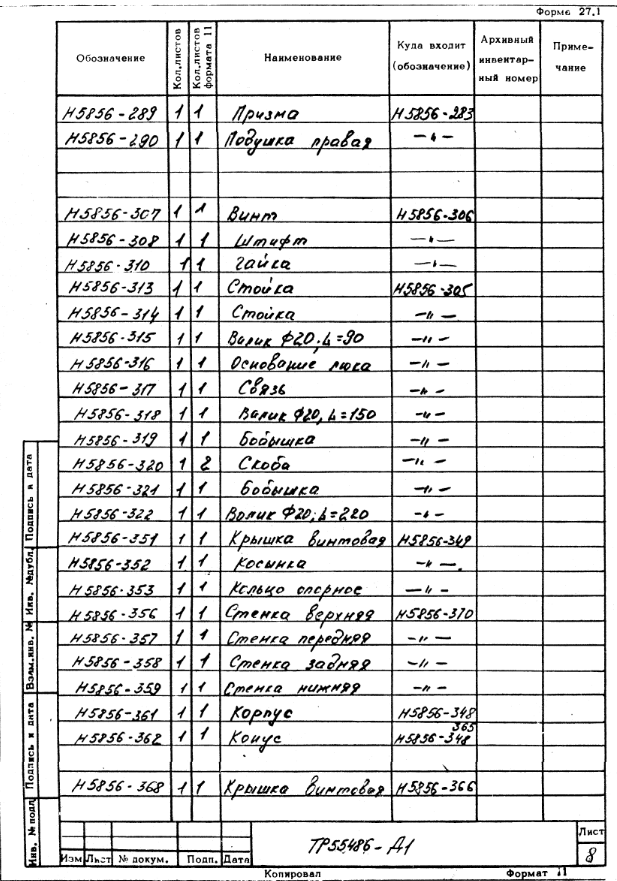 Форма 27.1
Обозначение Кол.листов Кол.листов формата 11 Наименование Куда входит (обозначение) Архивный инвентарный номер Примечание
Н5856-289 1 1 Призма Н5856-283
Н5856-290 1 1 Подушка правая -"-
Н5856-307 1 1 Винт Н5856-306
Н5856-308 1 1 Штифт -"-
Н5856-310 1 1 Гайка -"-
Н5856-313 1 1 Стойка Н5856-305
Н5856-314 1 1 Стойка -"-
Н5856-315 1 1 Валик Ф20; L=90 -"-
Н5856-316 1 1 Основание люка -"-
Н5856-317 1 1 Связь -"-
Н5856-318 1 1 Валик Ф20, L=150 -"-
Н5856-319 1 1 Бобышка -"-
Н5856-320 1 2 Скоба -"-
Н5856-321 1 1 Бобышка -"-
Н5856-322 1 1 Валик Ф20; L=220 -"-
Н5856-351 1 1 Крышка винтовая Н5856-349
Н5856-352 1 1 Косынка -"-
Н5856-353 1 1 Кольцо опорное -"-
Н5856-356 1 1 Стенка верхняя Н5856-370
Н5856-357 1 1 Стенка передняя -"-
Н5856-358 1 1 Стенка задняя -"-
Н5856-359 1 1 Стенка нижняя -"-
Н5856-361 1 1 Корпус Н5856-348
365
Н5856-362 1 1 Конус Н5856-348
Н5856-368 1 1 Крышка винтовая Н5856-366
Инв. № подл. Подпись и дата Взам.инв. № Инв. №дубл. Подпись и дата
Изм Лист № докум. Подп. Дата
ТР55486-Д1
Лист
8
Копировал Формат 11